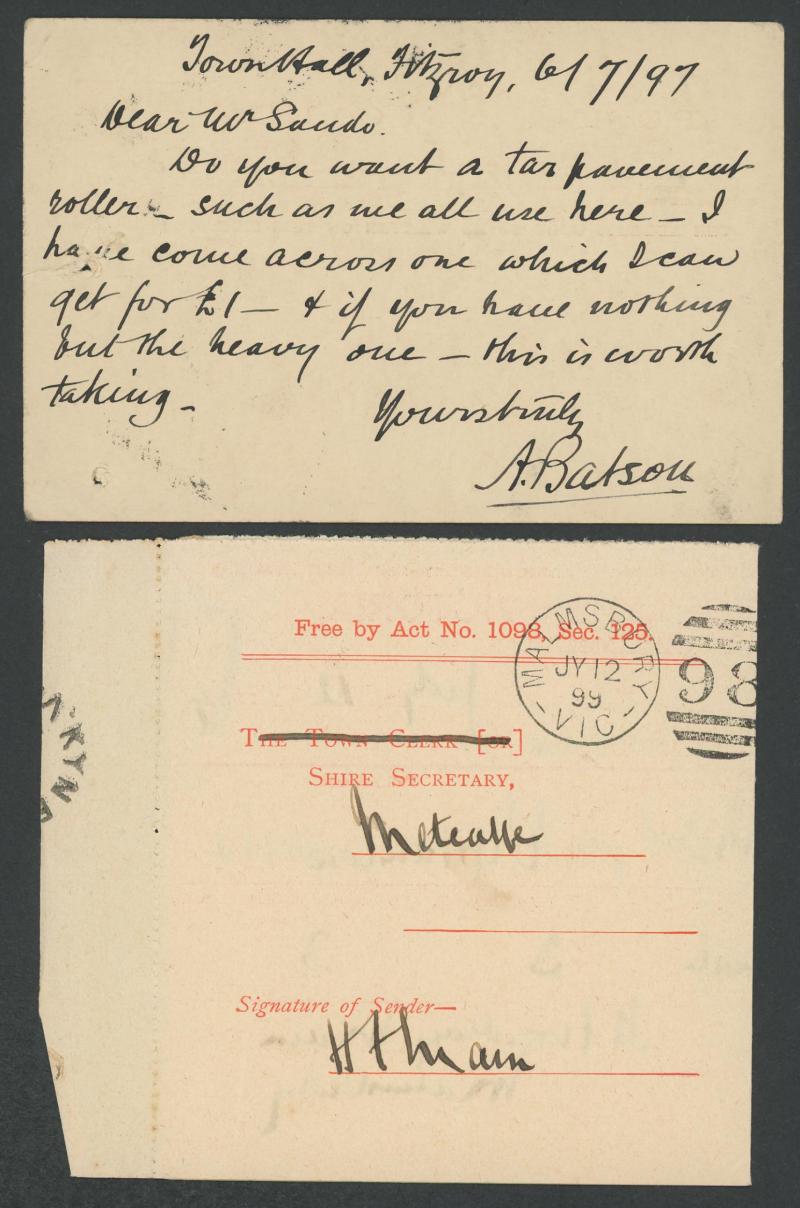 Town Hall, Fitzroy, 6/7/97
Dear Mr Sando.
Do you want a tar pavement
roller - such as we all use here - I
have come across one which I can
get for £1 - & if you have nothing
but the heavy one - this is worth
taking -
Yours truly
A. Batson
Free by Act No. 1098, Sec. 125.
MALMSBURY
JY 12
99
VIC
98
The Town Clerk [or]
Shire Secretary,
Metcalfe
KYN
Signature of Sender—